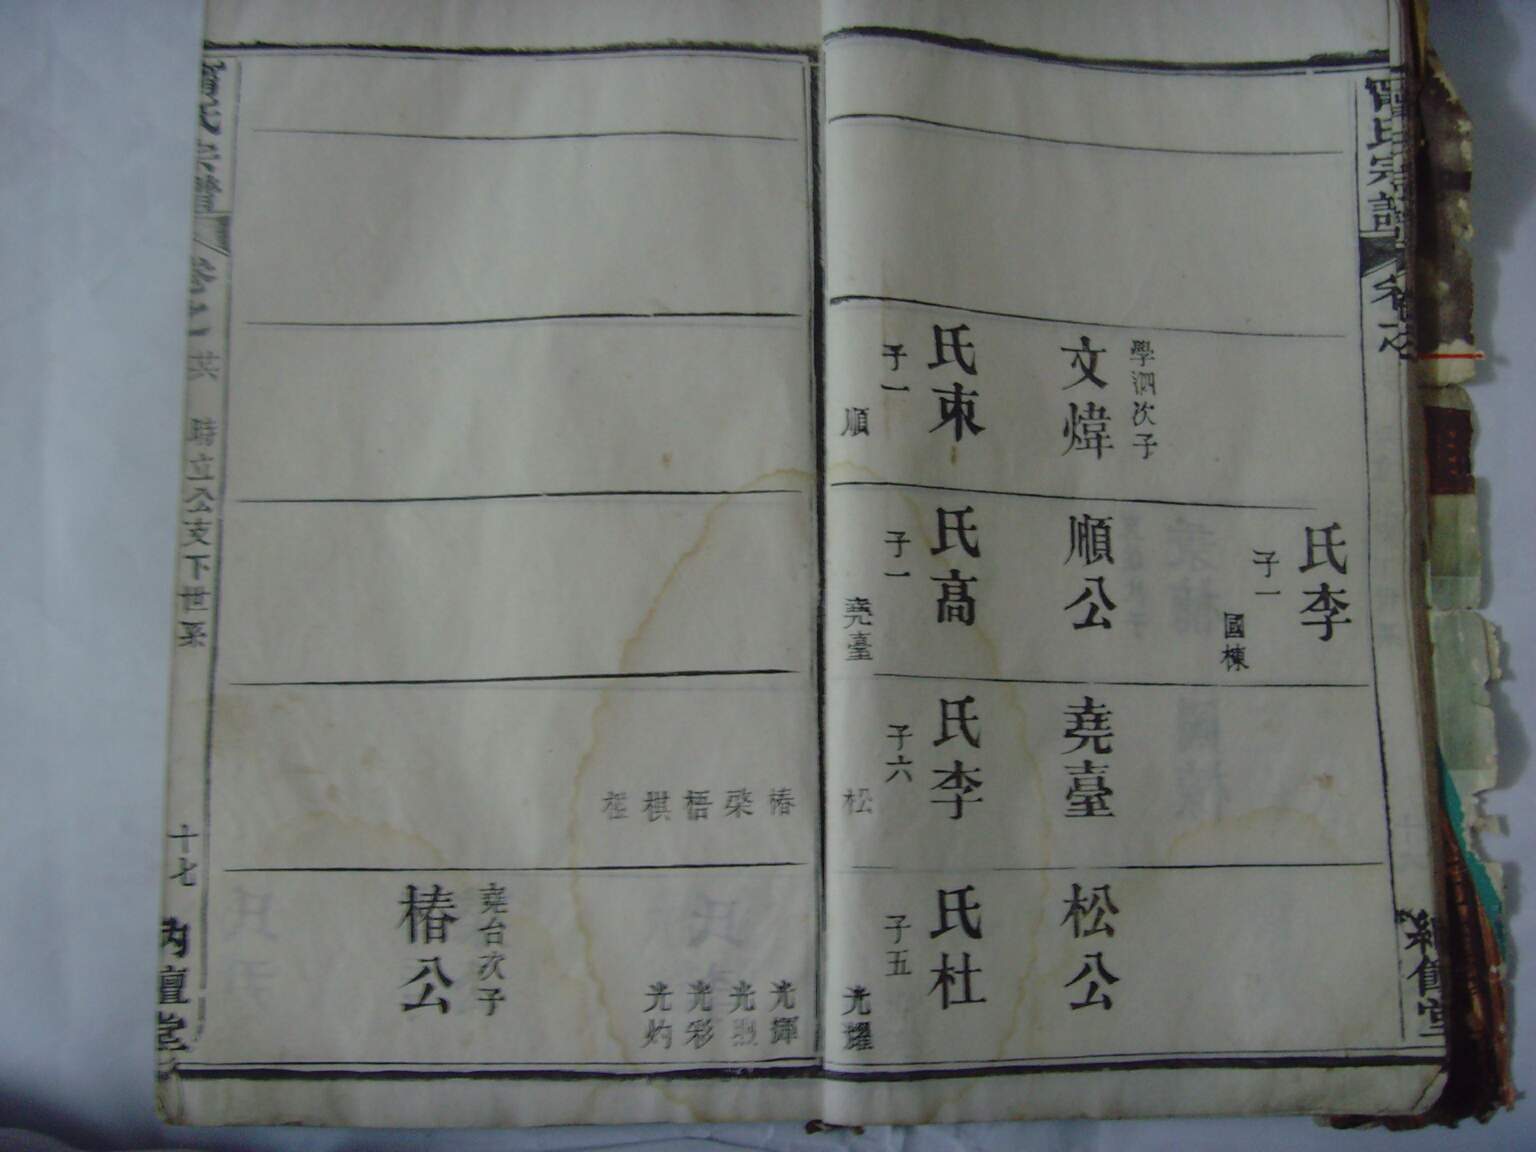 氏宗譜
氏李
子一
國棟
學泗次子
文煒
氏束
子一
順
順公
氏高
子一
堯臺
堯臺
氏李
子六
松
椿
棨
梧
棋
松公
氏杜
子五
光耀
光輝
光彩
光灼
堯台次子
椿公
氏宗譜
時立公支下世系
十七